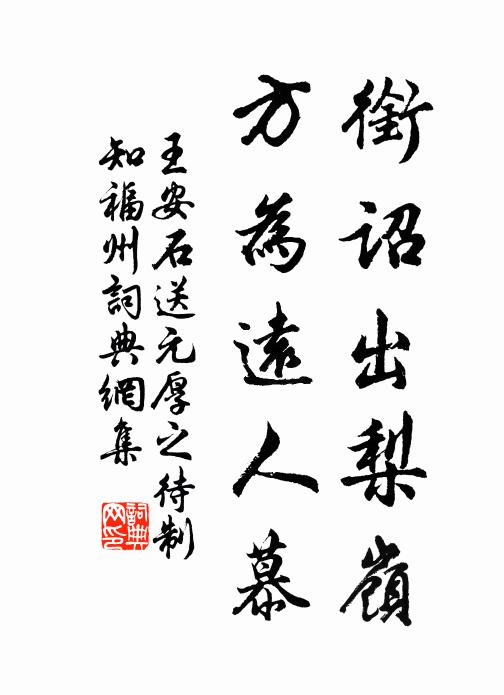 銜詔出梨嶺
方為遠人慕
王安石送元厚之待制
知福州詞典網集
詞典
网印